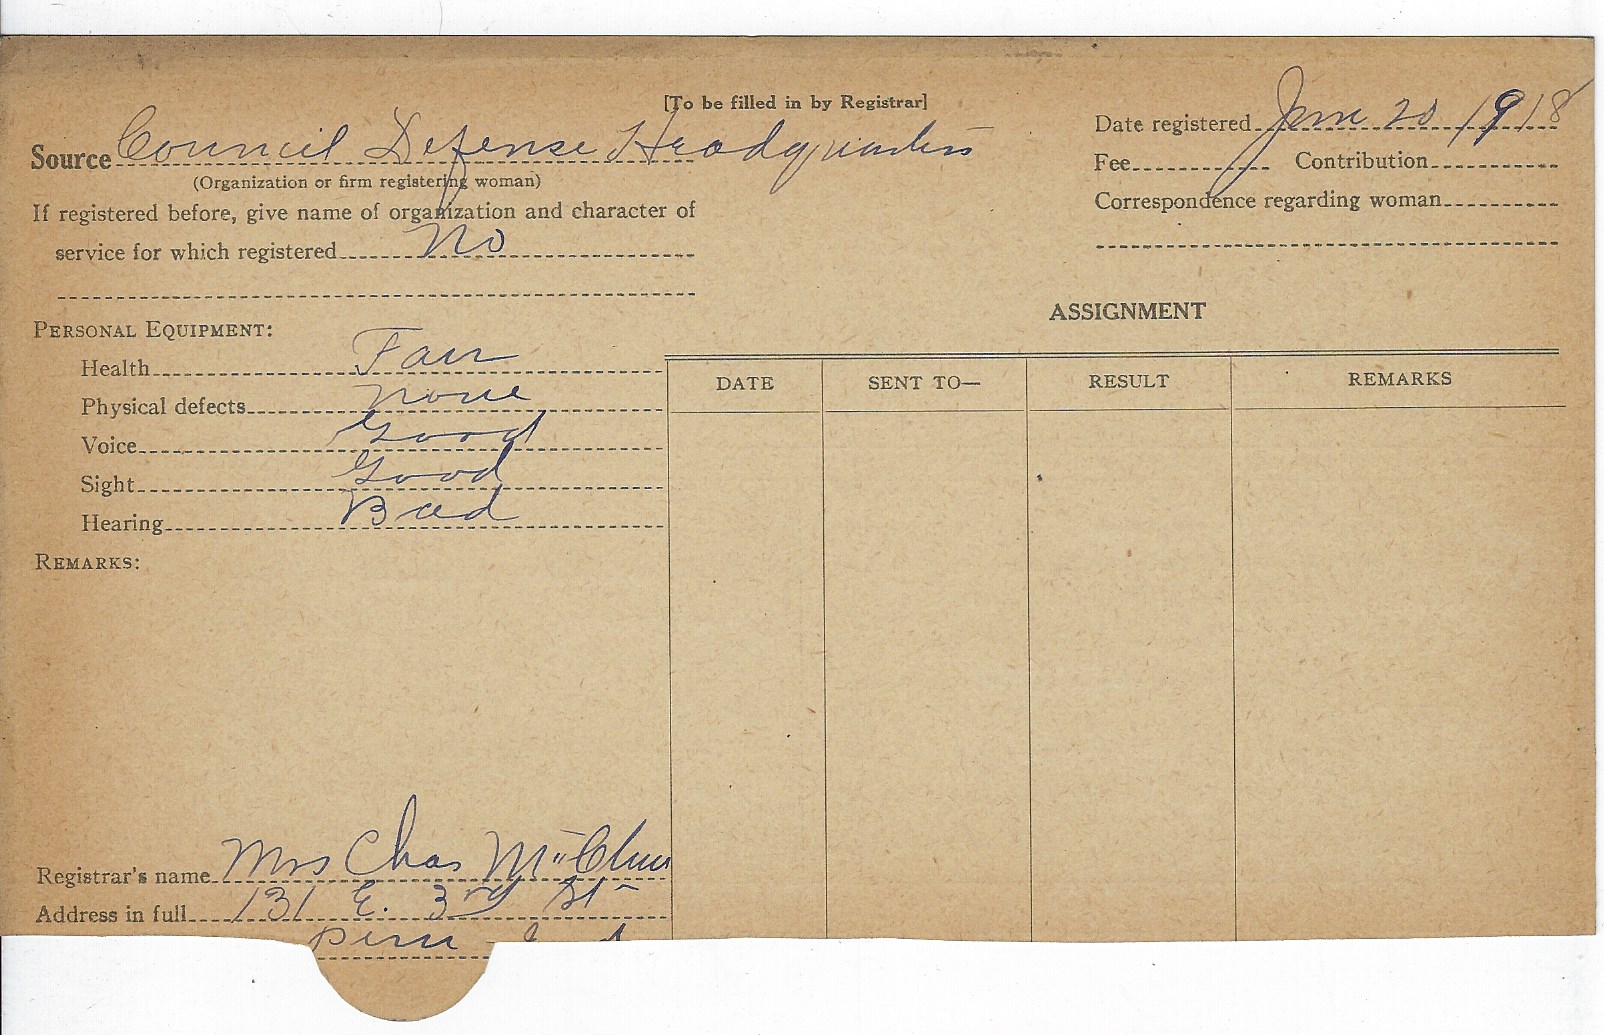 [To be filled in by Registrar]
Source Council Defense Headquarters
(Organization or firm registering woman)
If registered before, give name of organization and character of
service for which registered No
Date registered June 20 1918
Fee Contribution
Correspondence regarding woman
PERSONAL EQUIPMENT:
Health Fair
Physical defects None
Voice Good
Sight Good
Hearing Bad
REMARKS:
ASSIGNMENT
DATE SENT TO— RESULT REMARKS
Registrar's name Mrs Chas
Address in full 131 E. 3rd St
Peru